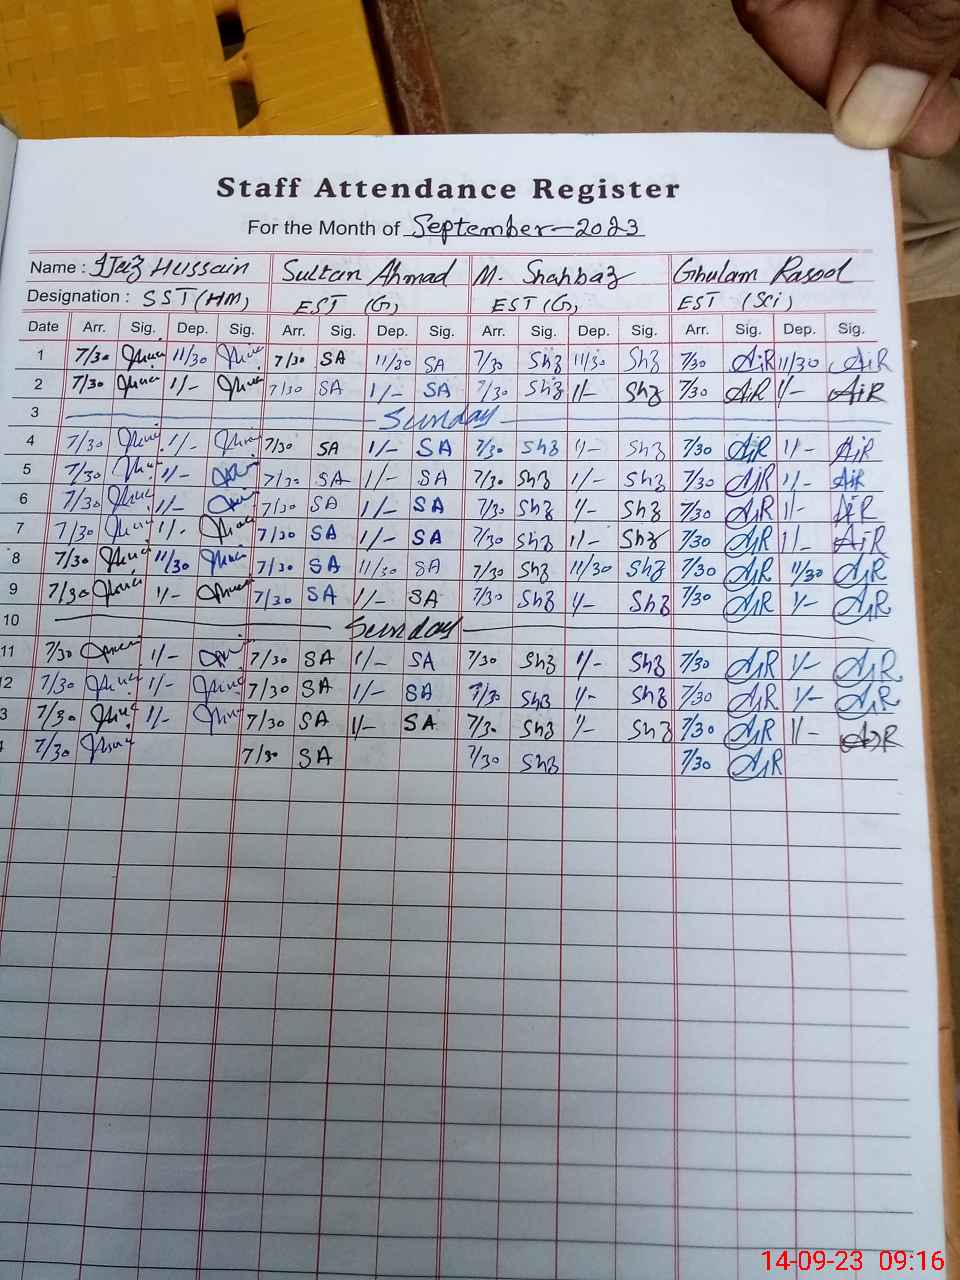 Staff Attendance Register
For the Month of September-2023
Name : Ijaiz Hussain Sultan Ahmad M. Shahbaz Ghulam Rasool
Designation : SST (HM) EST (G) EST (G) EST (Sci)
Date Arr. Sig. Dep. Sig. Arr. Sig. Dep. Sig. Arr. Sig. Dep. Sig. Arr. Sig. Dep. Sig.
1 7/30 11/30 7/30 SA 11/30 SA 7/30 Shz 11/30 Shz 7/30 AiR 11/30 AiR
2 7/30 1/- 7/30 SA 1/- SA 7/30 Shz 1/- Shz 7/30 AiR 1/- AiR
3 Sunday
4 7/30 1/- 7/30 SA 1/- SA 7/30 Shz 1/- Shz 7/30 AiR 1/- AiR
5 7/30 1/- 7/30 SA 1/- SA 7/30 Shz 1/- Shz 7/30 AiR 1/- AiR
6 7/30 1/- 7/30 SA 1/- SA 7/30 Shz 1/- Shz 7/30 AiR 1/- AiR
7 7/30 1/- 7/30 SA 1/- SA 7/30 Shz 1/- Shz 7/30 AiR 1/- AiR
8 7/30 11/30 7/30 SA 11/30 SA 7/30 Shz 11/30 Shz 7/30 AiR 11/30 AiR
9 7/30 1/- 7/30 SA 1/- SA 7/30 Shz 1/- Shz 7/30 AiR 1/- AiR
10 Sunday
11 7/30 1/- 7/30 SA 1/- SA 7/30 Shz 1/- Shz 7/30 AiR 1/- AiR
12 7/30 1/- 7/30 SA 1/- SA 7/30 Shz 1/- Shz 7/30 AiR 1/- AiR
3 7/30 1/- 7/30 SA 1/- SA 7/30 Shz 1/- Shz 7/30 AiR 1/- AiR
7/30 7/30 SA 7/30 Shz 7/30 AiR
14-09-23 09:16